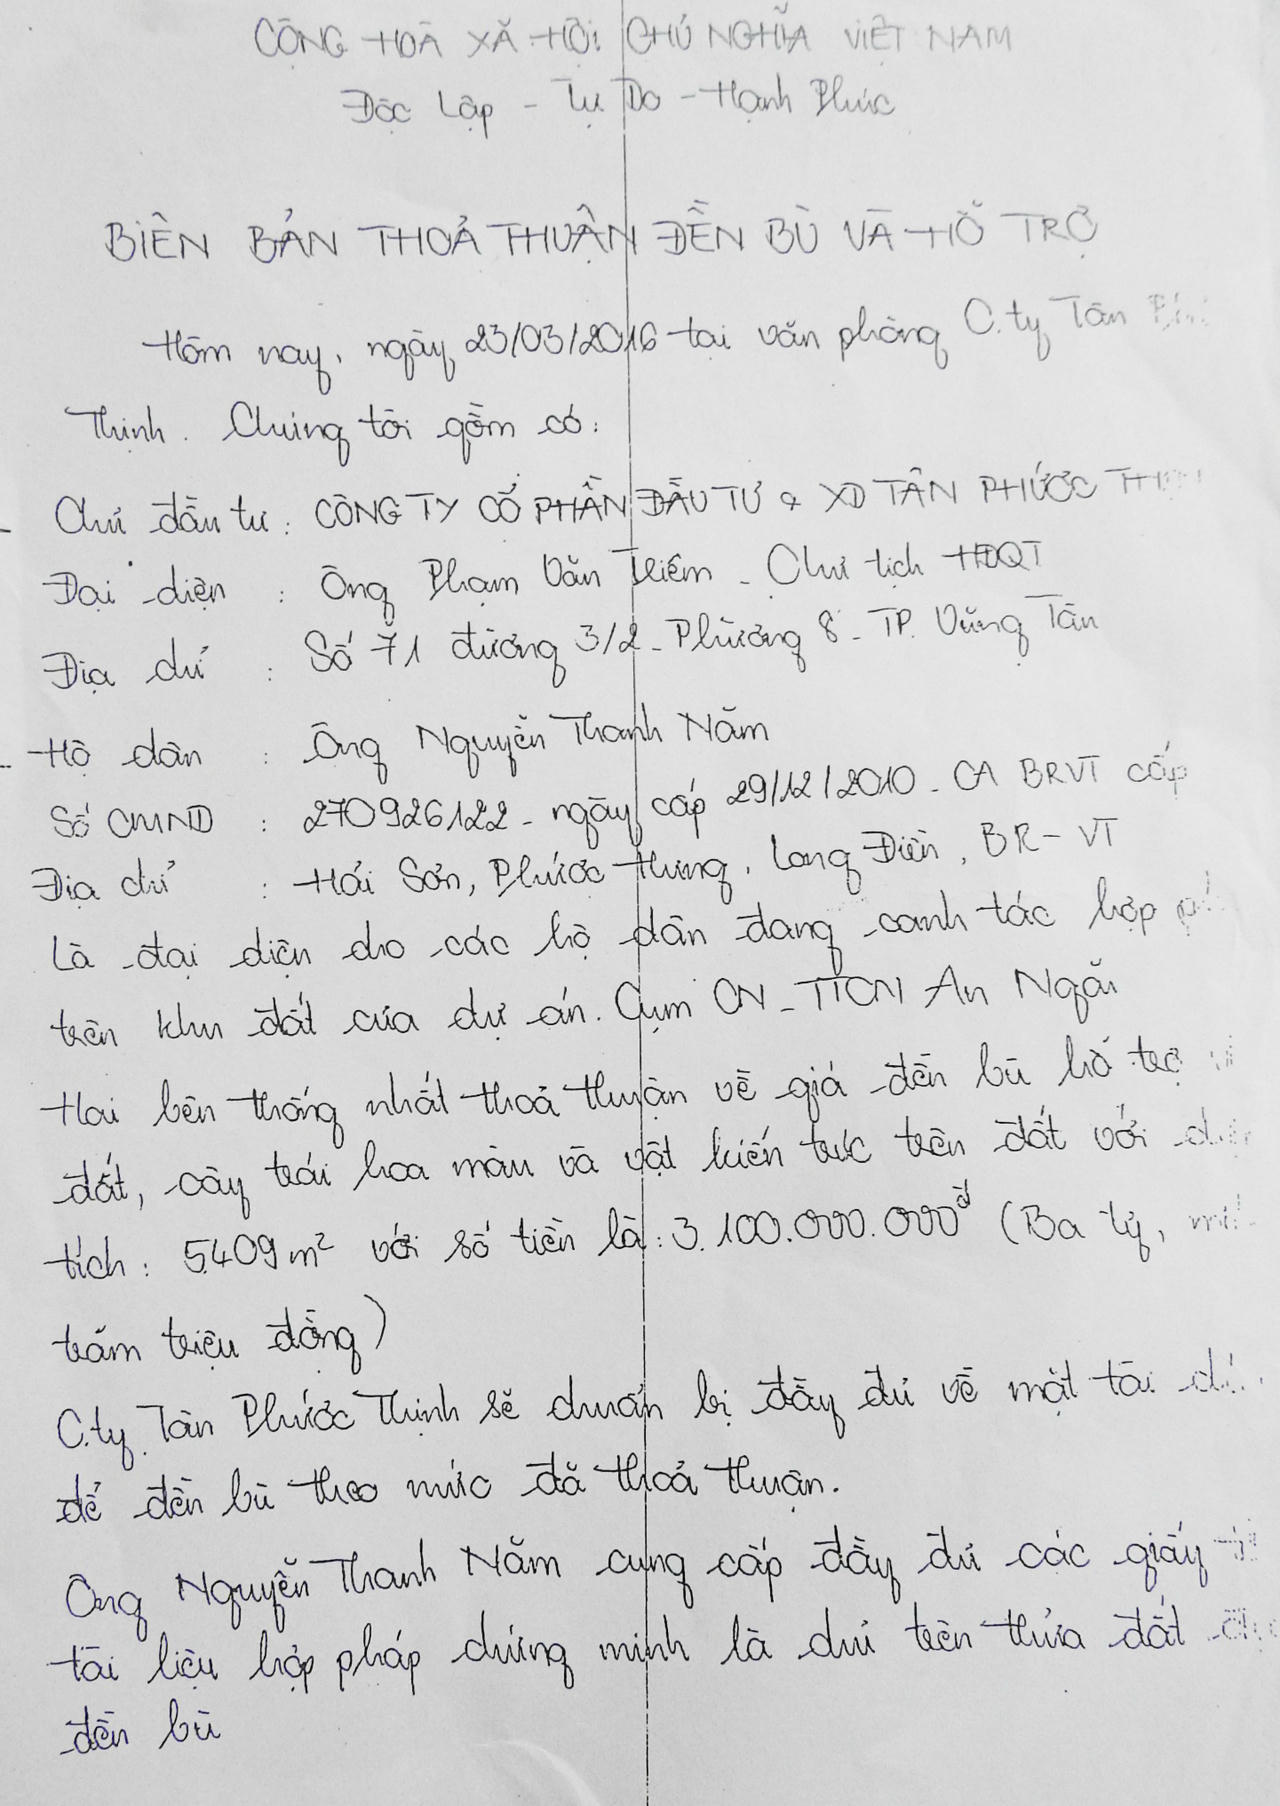 CỘNG HOÀ XÃ HỘI CHỦ NGHĨA VIỆT NAM
Độc Lập - Tự Do - Hạnh Phúc
BIÊN BẢN THOẢ THUẬN ĐỀN BÙ VÀ HỖ TRỢ
Hôm nay, ngày 23/03/2016 tại văn phòng C.ty Tân
Thịnh. Chúng tôi gồm có:
Chủ đầu tư: CÔNG TY CỔ PHẦN ĐẦU TƯ & XD TÂN PHƯỚC
Đại diện : Ông Phạm Văn Triêm - Chủ tịch HĐQT
Địa chỉ : Số 71 đường 3/2 - Phường 8 - TP. Vũng Tàu
Hộ dân : Ông Nguyễn Thanh Năm
Số CMND : 270926122 - ngày cấp 29/12/2010 - CA BRVT cấp
Địa chỉ : Hải Sơn, Phước Hưng, Long Điền, BR-VT
Là đại diện cho các hộ dân đang canh tác hợp
trên khu đất của dự án. Cụm CN - TTCN An Ngãi
Hai bên thống nhất thoả thuận về giá đền bù hỗ trợ
đất, cây trái hoa màu và vật kiến trúc trên đất với
tích: 5409m² với số tiền là: 3.100.000.000đ (Ba tỷ, một
trăm triệu đồng)
C.ty Tân Phước Thịnh sẽ chuẩn bị đầy đủ về mặt tài
để đền bù theo mức đã thoả thuận.
Ông Nguyễn Thanh Năm cung cấp đầy đủ các giấy
tài liệu hợp pháp chứng minh là chủ trên thửa đất
đền bù